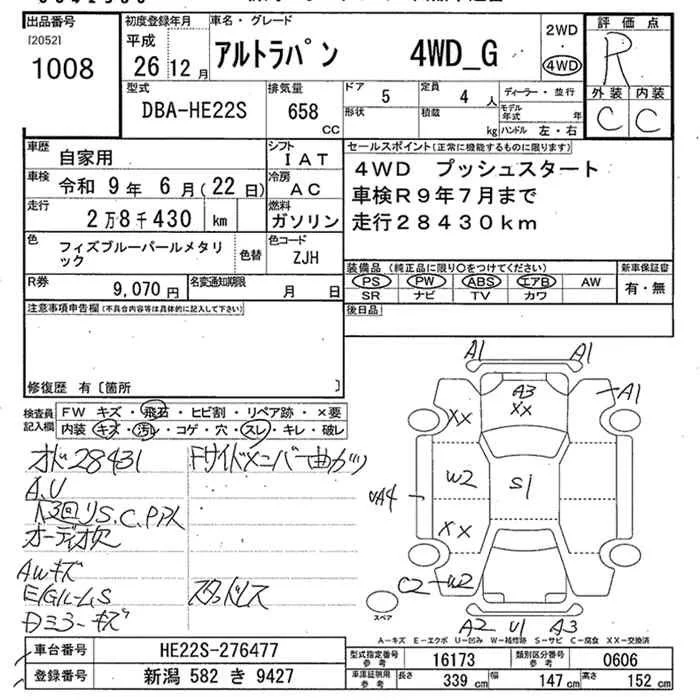 出品番号
[2052]
1008
初度登録年月
平成
26 12 月
車名・グレード
アルトラパン 4WD_G
2WD
・
4WD
評価点
R
外装 内装
C C
型式
DBA-HE22S
排気量
658
CC
ドア
5
定員
4 人
形状
積載
kg
ディーラー・並行
モデル年式 年
ハンドル 左・右
車歴
自家用
シフト
IAT
車検
令和 9 年 6 月 (22 日)
冷房
AC
走行
2 万 8 千 430 km
燃料
ガソリン
色
フィズブルーパールメタリック
色替
色コード
ZJH
R券
9,070 円
名変通知期限
月 日
セールスポイント(正常に機能するものに限ります)
4WD プッシュスタート
車検R9年7月まで
走行28430km
装備品(純正品に限り○をつけてください)
PS PW ABS エアB AW
SR ナビ TV カワ
新車保証書
有・無
後日品
注意事項申告欄(不具合内容等は具体的に記入して下さい)
修復歴 有〔箇所 〕
検査員
記入欄
FW キズ・飛石・ヒビ割・リペア跡・×要
内装 キズ・汚レ・コゲ・穴・スレ・キレ・破レ
オド28431
A,U
オーディオ欠
AWキズ
Dミラーキズ
Fサイドメンバー曲がり
スタッドレス
A1 A1
A3
XX
A1
XX
W2
S1
UA4
XX
C2 W2
A2 U1 A3
スペア
A-キズ E-エクボ U-凹み W-補修跡 S-サビ C-腐食 XX-交換済
車台番号
HE22S-276477
登録番号
新潟 582 き 9427
型式指定番号
参考
16173
類別区分番号
参考
0606
車庫証明用
参考
長さ
339 cm
幅
147 cm
高さ
152 cm